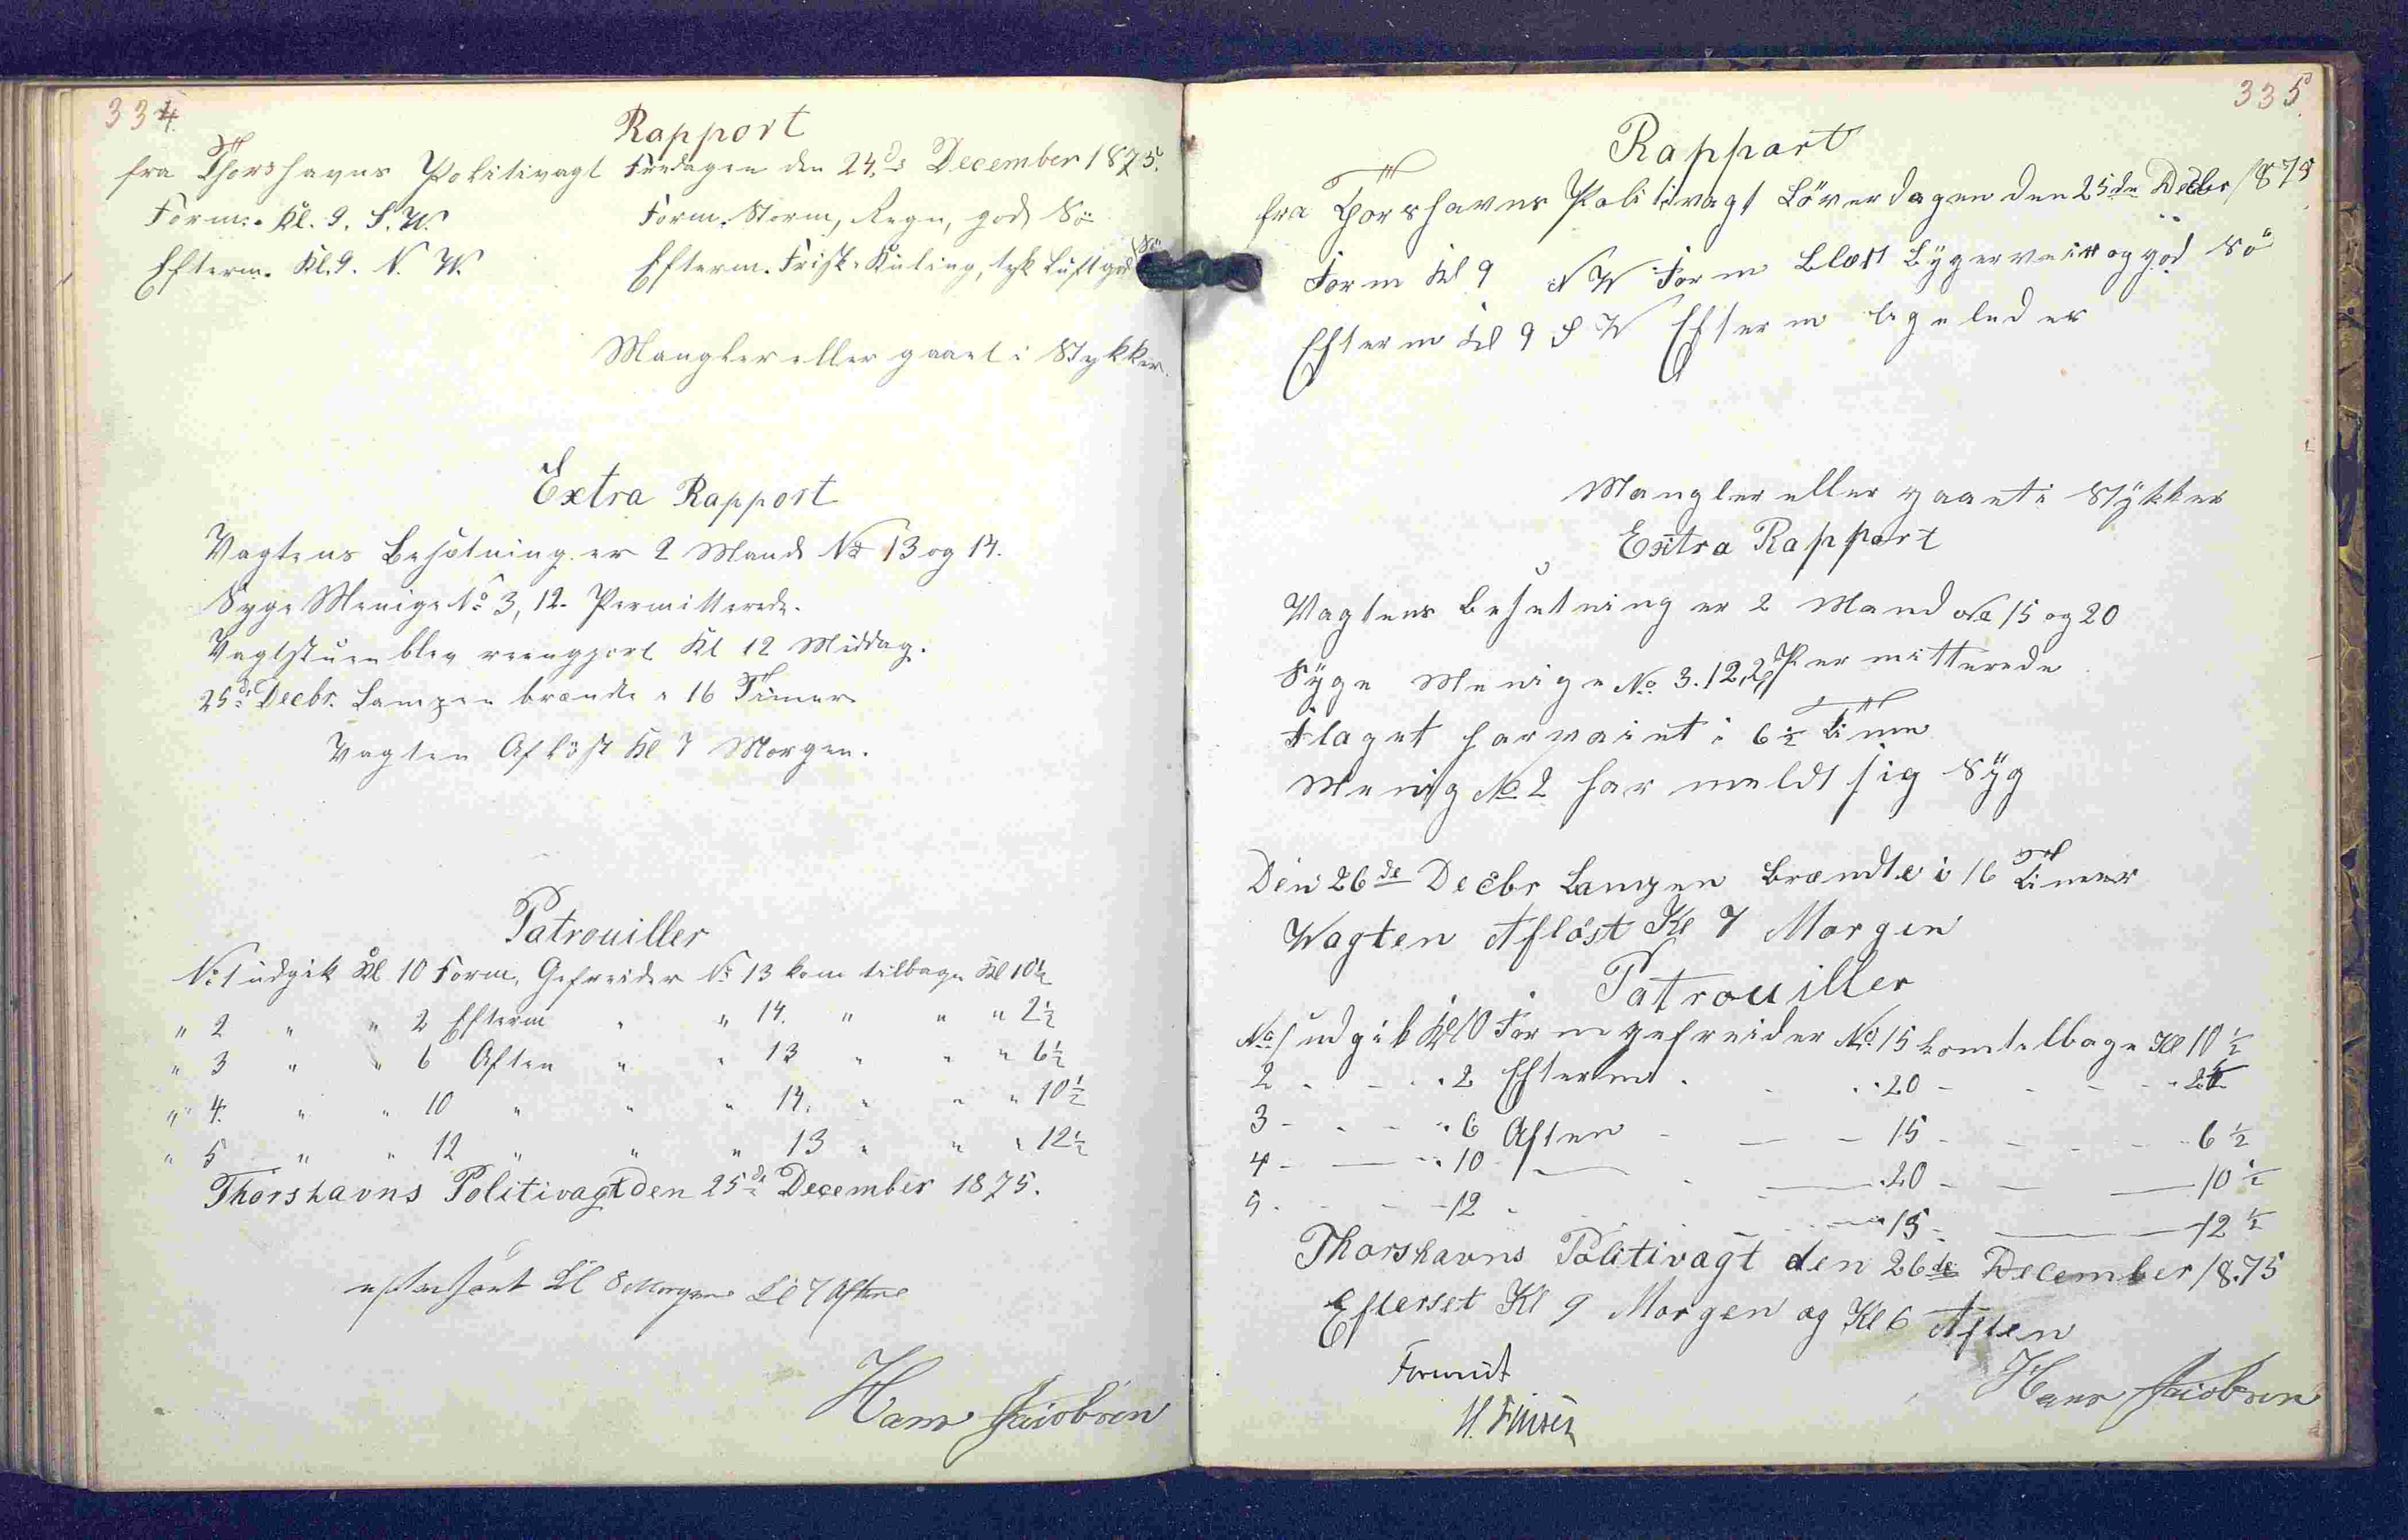 334.
Rapport
fra Thorshavns Politivagt Fredagen den 24de December 1875.
Form. Kl. 9. S. W. Form. Storm, Regn, god Sö
Efterm. Kl. 9. N. W. Efterm. Frisk Kuling, tyk Luft god Sö
Mangler eller gaaet i Stykker.
Extra Rapport
Vagtens Besætning er 2 Mand No 13 og 14.
Syge Menige No 3, 12. Permitterede.
Vagtstuen blev reengjort Kl 12 Middag.
25de Decbr. Lampen brændte i 16 Timer
Vagten Aflöst Kl 7 Morgen.
Patrouiller
No 1 udgik Kl 10 Form. Gefreider No 13 kom tilbage Kl 10½
" 2 " " 2 Efterm " " 14. " " " 2½
" 3 " " 6 Aften " " 13 " " " 6½
" 4. " " 10 " " " 14. " " " 10½
" 5 " " 12 " " " 13 " " " 12½
Thorshavns Politivagt den 25de December 1875.
Kl 8 Morgen Kl 7 Aften
Hans Jacobsen
335.
Rapport
fra Thorshavns Politivagt Löverdagen den 25de Decbr 1875
Form Kl 9 N W Form Blæst Bygerveir og god Sö
Efterm Kl 9 S W Efterm ligeleder
Mangler eller gaaet i Stykker
Extra Rapport
Vagtens Besetning er 2 Mand No 15 og 20
Syge Menige No 3. 12, 2, Permitterede
Flaget har vaiet i 6½ Time
Menig No 2 har meldt sig Syg
Den 26de Decbr Lampen Brændte i 16 Timer
Wagten Aflöst Kl 7 Morgen
Patrouiller
No 1 udgik Kl 10 Form gefreider No 15 kom tilbage Kl 10½
2 - - - 2 Efterm - - 20 - - - 2½
3 - - - 6 Aften - - 15 - - - 6½
4 - - - 10 - - - 20 - - - 10½
5 - - - 12 - - - 15 - - - 12½
Thorshavns Politivagt den 26de December 1875
Efterset Kl 9 Morgen og Kl 6 Aften
Hans Jacobsen
H. Finsen